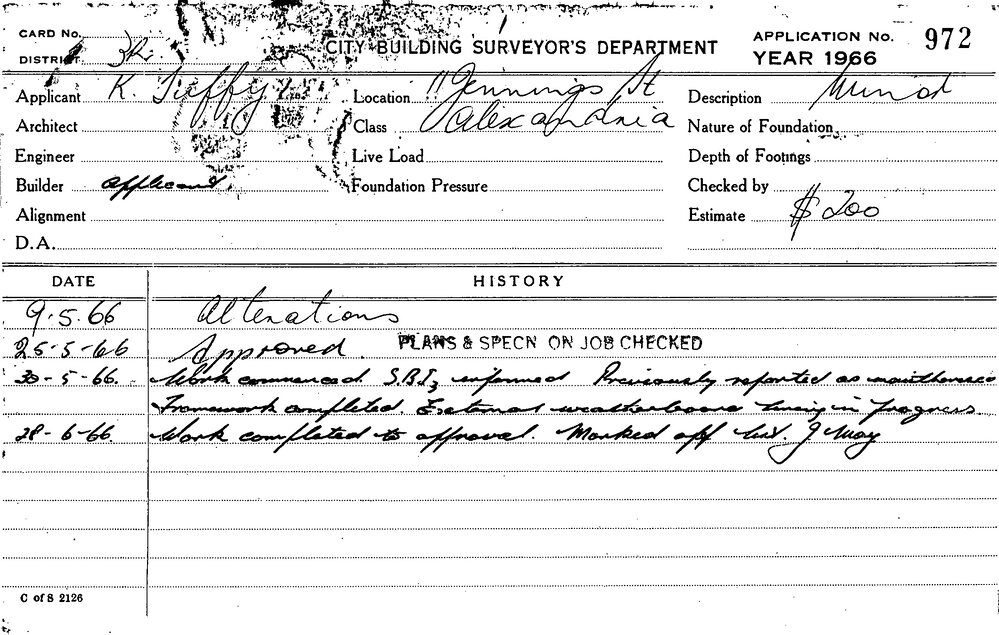 CARD No.
CITY BUILDING SURVEYOR'S DEPARTMENT
APPLICATION No. 972
DISTRICT
YEAR 1966
Applicant K. Tuffy Location 11 Jennings St Description Minor
Architect Class Alexandria Nature of Foundation
Engineer Live Load Depth of Footings
Builder applicant Foundation Pressure Checked by
Alignment Estimate $200
D.A.
DATE HISTORY
9.5.66 Alterations
25-5-66 Approved. PLANS & SPECN ON JOB CHECKED
30-5-66. Work commenced. S.B.I. informed Previously reported as
Framework completed. External weatherboard lining in progress
28-6-66. Work completed to approval. Marked off list. J May
C of S 2126